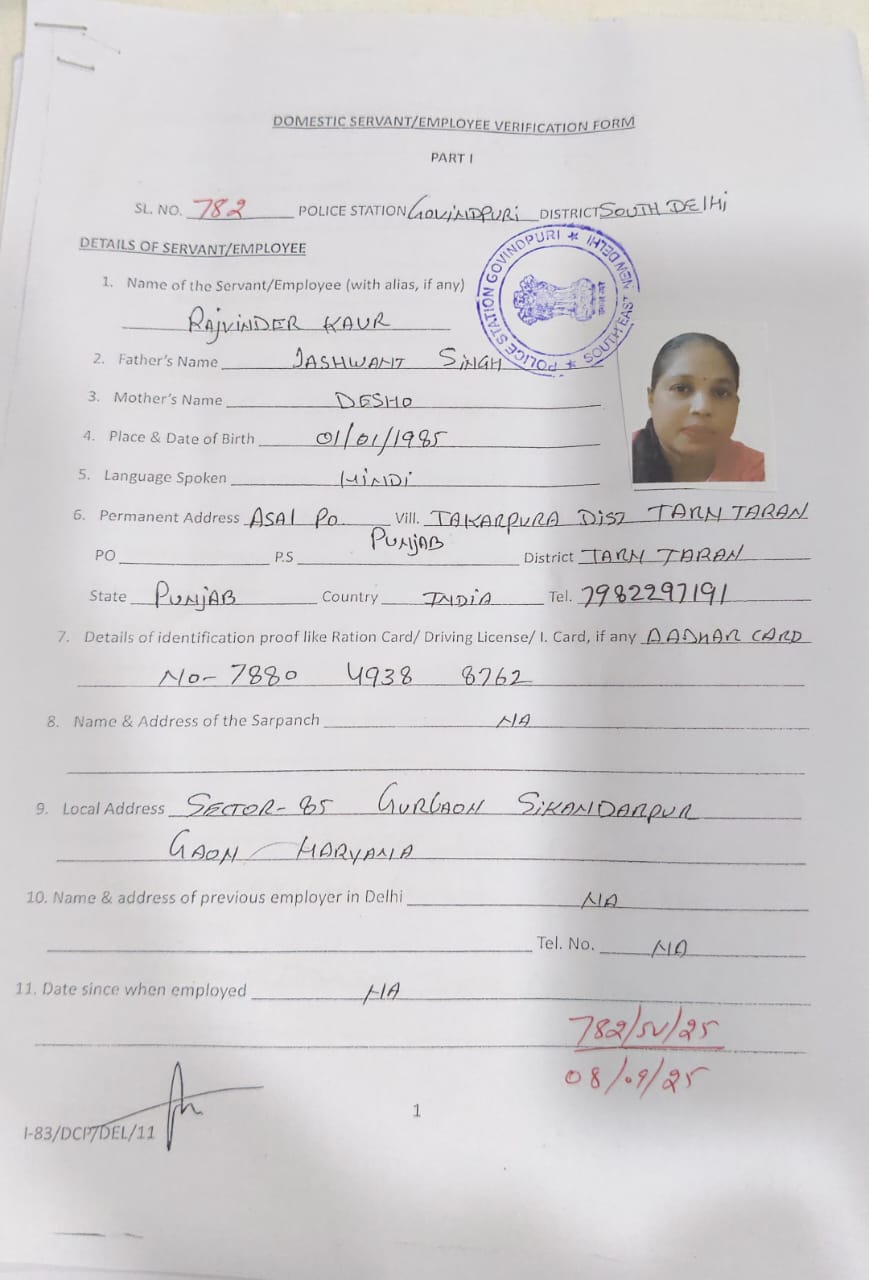 DOMESTIC SERVANT/EMPLOYEE VERIFICATION FORM
PART I
SL. NO. 782 POLICE STATION GOVINDPURI DISTRICT SOUTH DELHI
POLICE STATION GOVINDPURI ★ SOUTH EAST NEW DELHI ★
DETAILS OF SERVANT/EMPLOYEE
1. Name of the Servant/Employee (with alias, if any)
RAJVINDER KAUR
2. Father's Name JASHWANT SINGH
3. Mother's Name DESHO
4. Place & Date of Birth 01/01/1985
5. Language Spoken HINDI
6. Permanent Address ASAl Po Vill. TAKARPURA DIST TARN TARAN
PUNJAB
PO P.S District TARN TARAN
State PUNJAB Country INDIA Tel. 7982297191
7. Details of identification proof like Ration Card/ Driving License/ I. Card, if any AADHAR CARD
No- 7880 4938 8762
8. Name & Address of the Sarpanch NA
9. Local Address SECTOR- 85 GURGAON SIKANDARPUR
GAON HARYANA
10. Name & address of previous employer in Delhi NA
Tel. No. NA
11. Date since when employed NA
782/SV/25
08/09/25
1
I-83/DCP/DEL/11